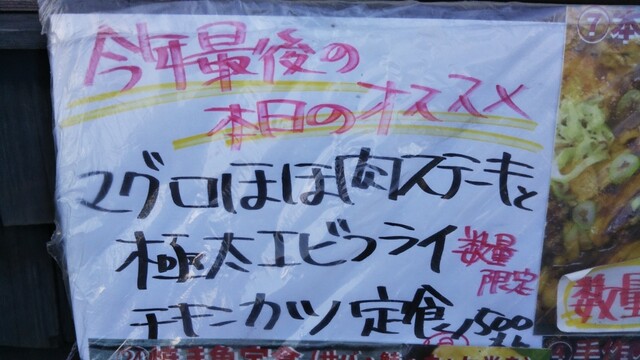 今年最後の
本日のオススメ
マグロほほ肉ステーキと
極太エビフライ 数量限定
チキンカツ定食 1500
⑦本
数量